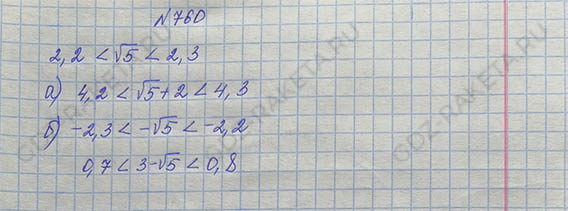 №760
2,2 < √5 < 2,3
а) 4,2 < √5 + 2 < 4,3
б) -2,3 < -√5 < -2,2
0,7 < 3-√5 < 0,8
GDZ-RAKETA.RU
GDZ-RAKETA.RU
GDZ-RAKETA.RU